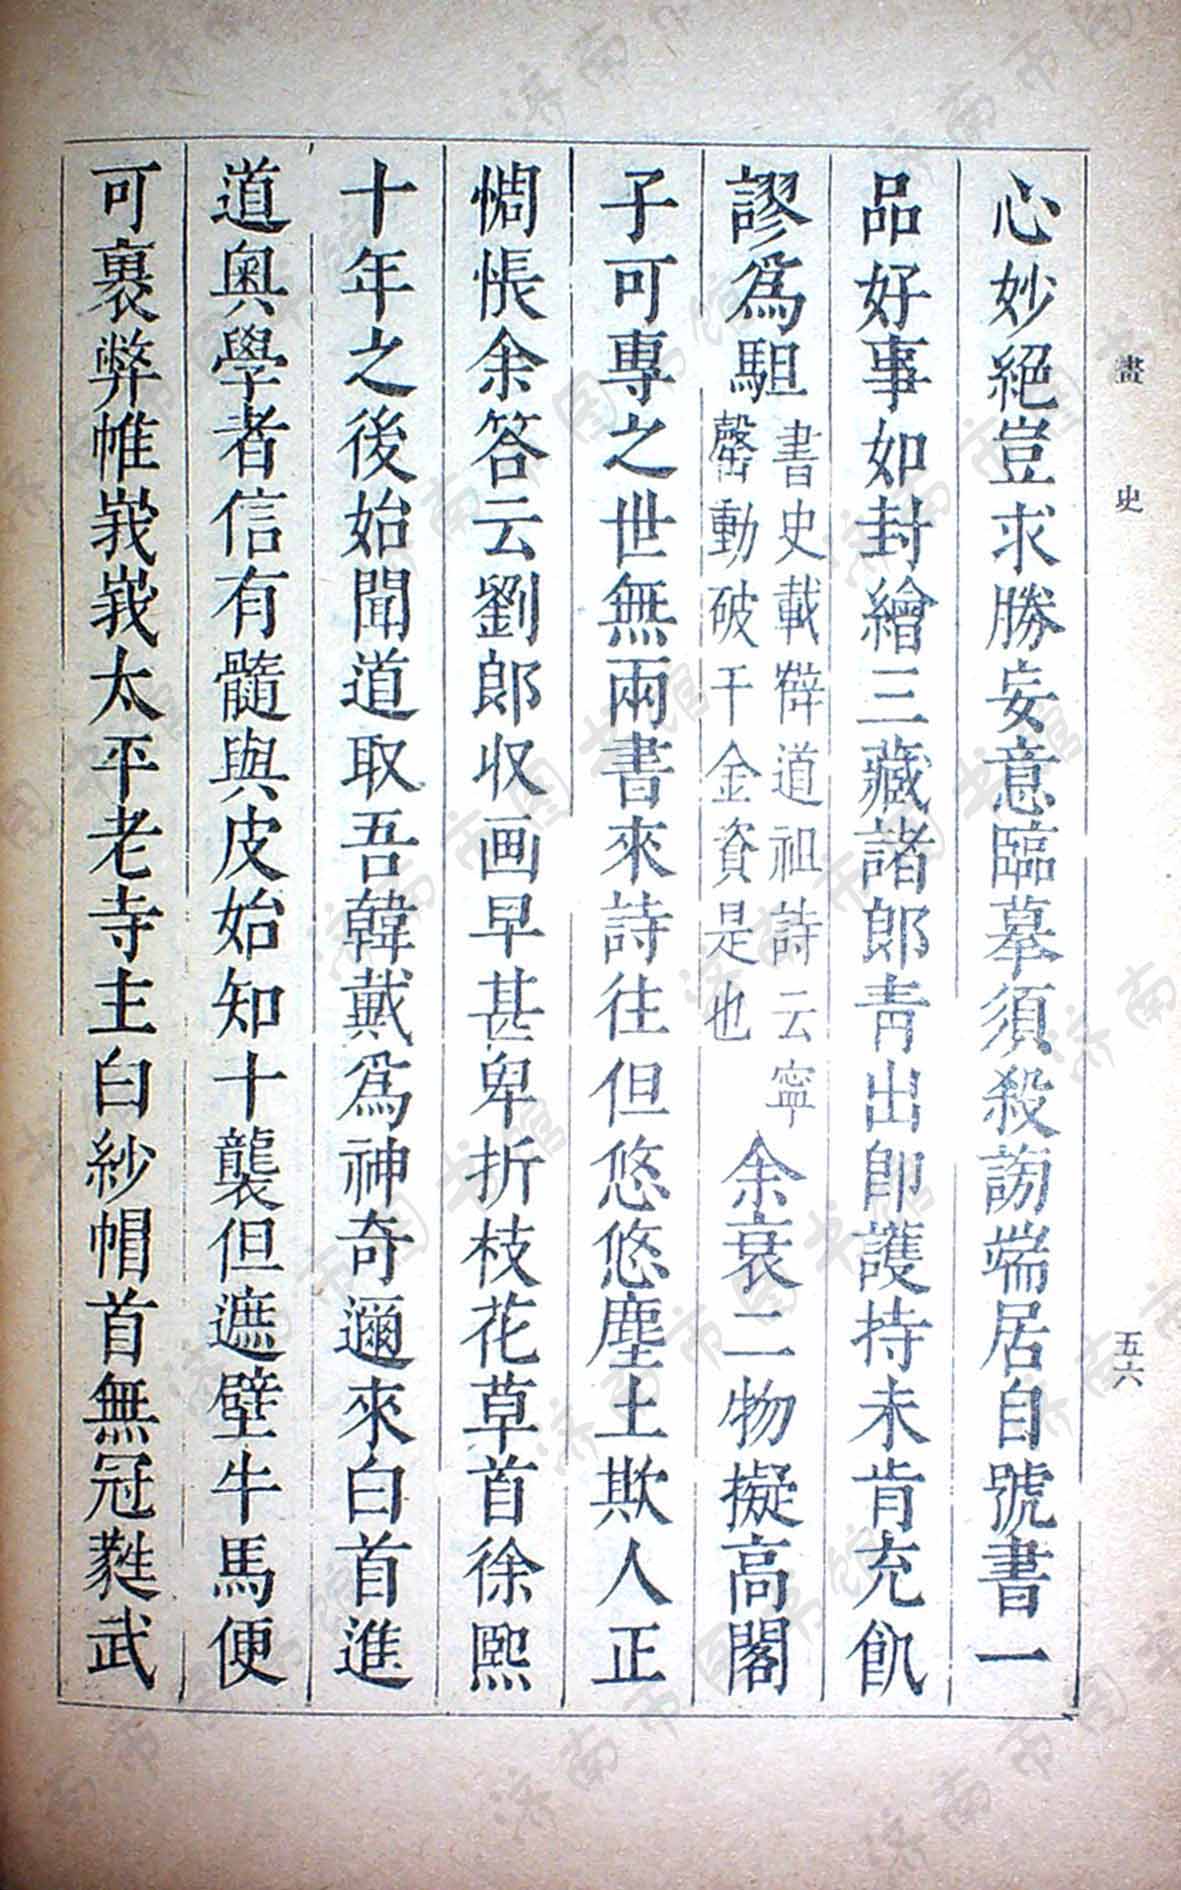 畫史
五六
心妙絕豈求勝妄意臨摹須殺謗端居自號書一
品好事如封繪三藏諸郎青出卽護持未肯充飢
謬爲駔
書史載薛道祖詩云寧
罄動破千金資是也
余衰二物擬高閣
子可專之世無兩書來詩往但悠悠塵土欺人正
惆悵余答云劉郎収画早甚卑折枝花草首徐熙
十年之後始聞道取吾韓戴爲神奇邇來白首進
道奧學者信有髓與皮始知十襲但遮壁牛馬便
可裹弊帷峩峩太平老寺主白紗帽首無冠蕤武